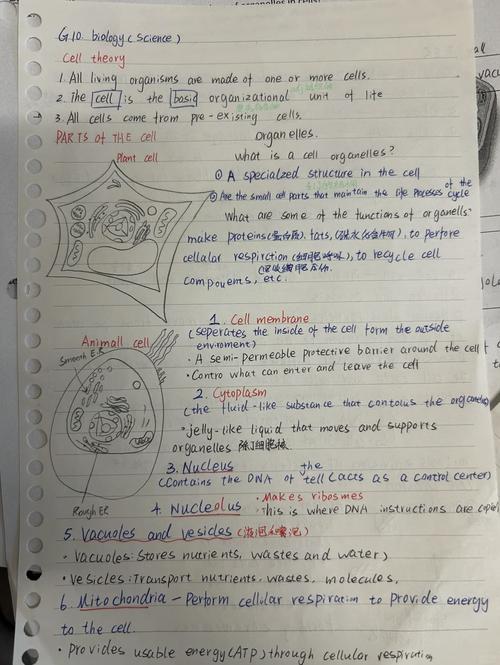 G.10. biology (Science)
Cell theory
1. All living organisms are made of one or more cells.
2. The cell is the basic organizational unit of life
3. All cells come from pre-existing cells.
PARTS of THE cell
Organelles.
Plant cell
What is a cell organelles?
① A specialzed structure in the cell
② Are the small cell parts that maintain the life processes of the cycle
What are some of the functions of organells.
make proteins (蛋白质), fats, (碳水化合物), to perfore
cellular respirction (细胞呼吸), to recycle cell
compouents, etc.
1. Cell membrane
(seperates the inside of the cell form the outside
enviroment)
Animall cell
Smooth E.R
• A semi-permeable protective barrier around the cell
• Contro what can enter and leave the cell
2. Cytoplasm
(the fluid-like substance that contous the organelles)
• jelly-like liquid that moves and supports
organelles 除了细胞核
3. Nucleus
(Contains the DNA of the cell (acts as a control center)
Rough ER
4. Nucleolus • Makes ribosmes
• This is where DNA instructions are copied
5. Vacuoles and vesicles
• Vacuoles: Stores nutrients, wastes and water,
• Vesicles: Transport nutrients, wastes, molecules,
6. Mitochondria – Perform cellular respiration to provide energy
to the cell.
• Provides usable energy (ATP) through cellular respiration